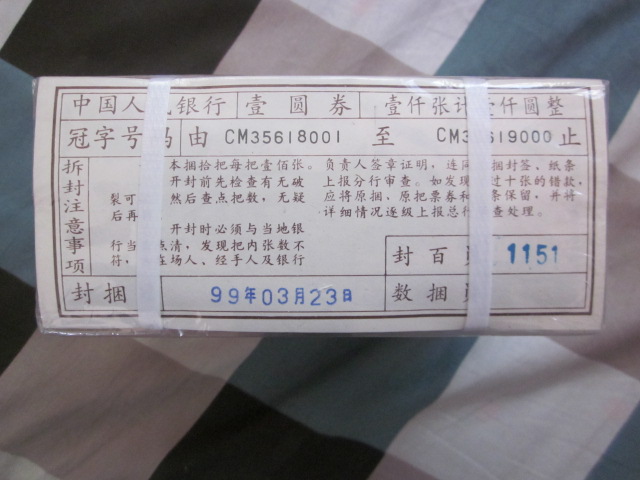 中国人 银行 壹圆券 壹仟张计 仟圆整
冠字号码 由 CM35618001 至 CM3 619000 止
拆封注意事项
本捆拾把每把壹佰张。
开封前先检查有无破
裂可 然后查点把数,无疑
后再
开封时必须与当地银
行当 点清,发现把内张数不
符, 在场人、经手人及银行
负责人签章证明,连同 捆封签、纸条
上报分行审查。如发现 过十张的错款,
应将原捆、原把票券和 条保留,并将
详细情况逐级上报总行 查处理。
封百 1151
封捆 99年03月23日 数捆